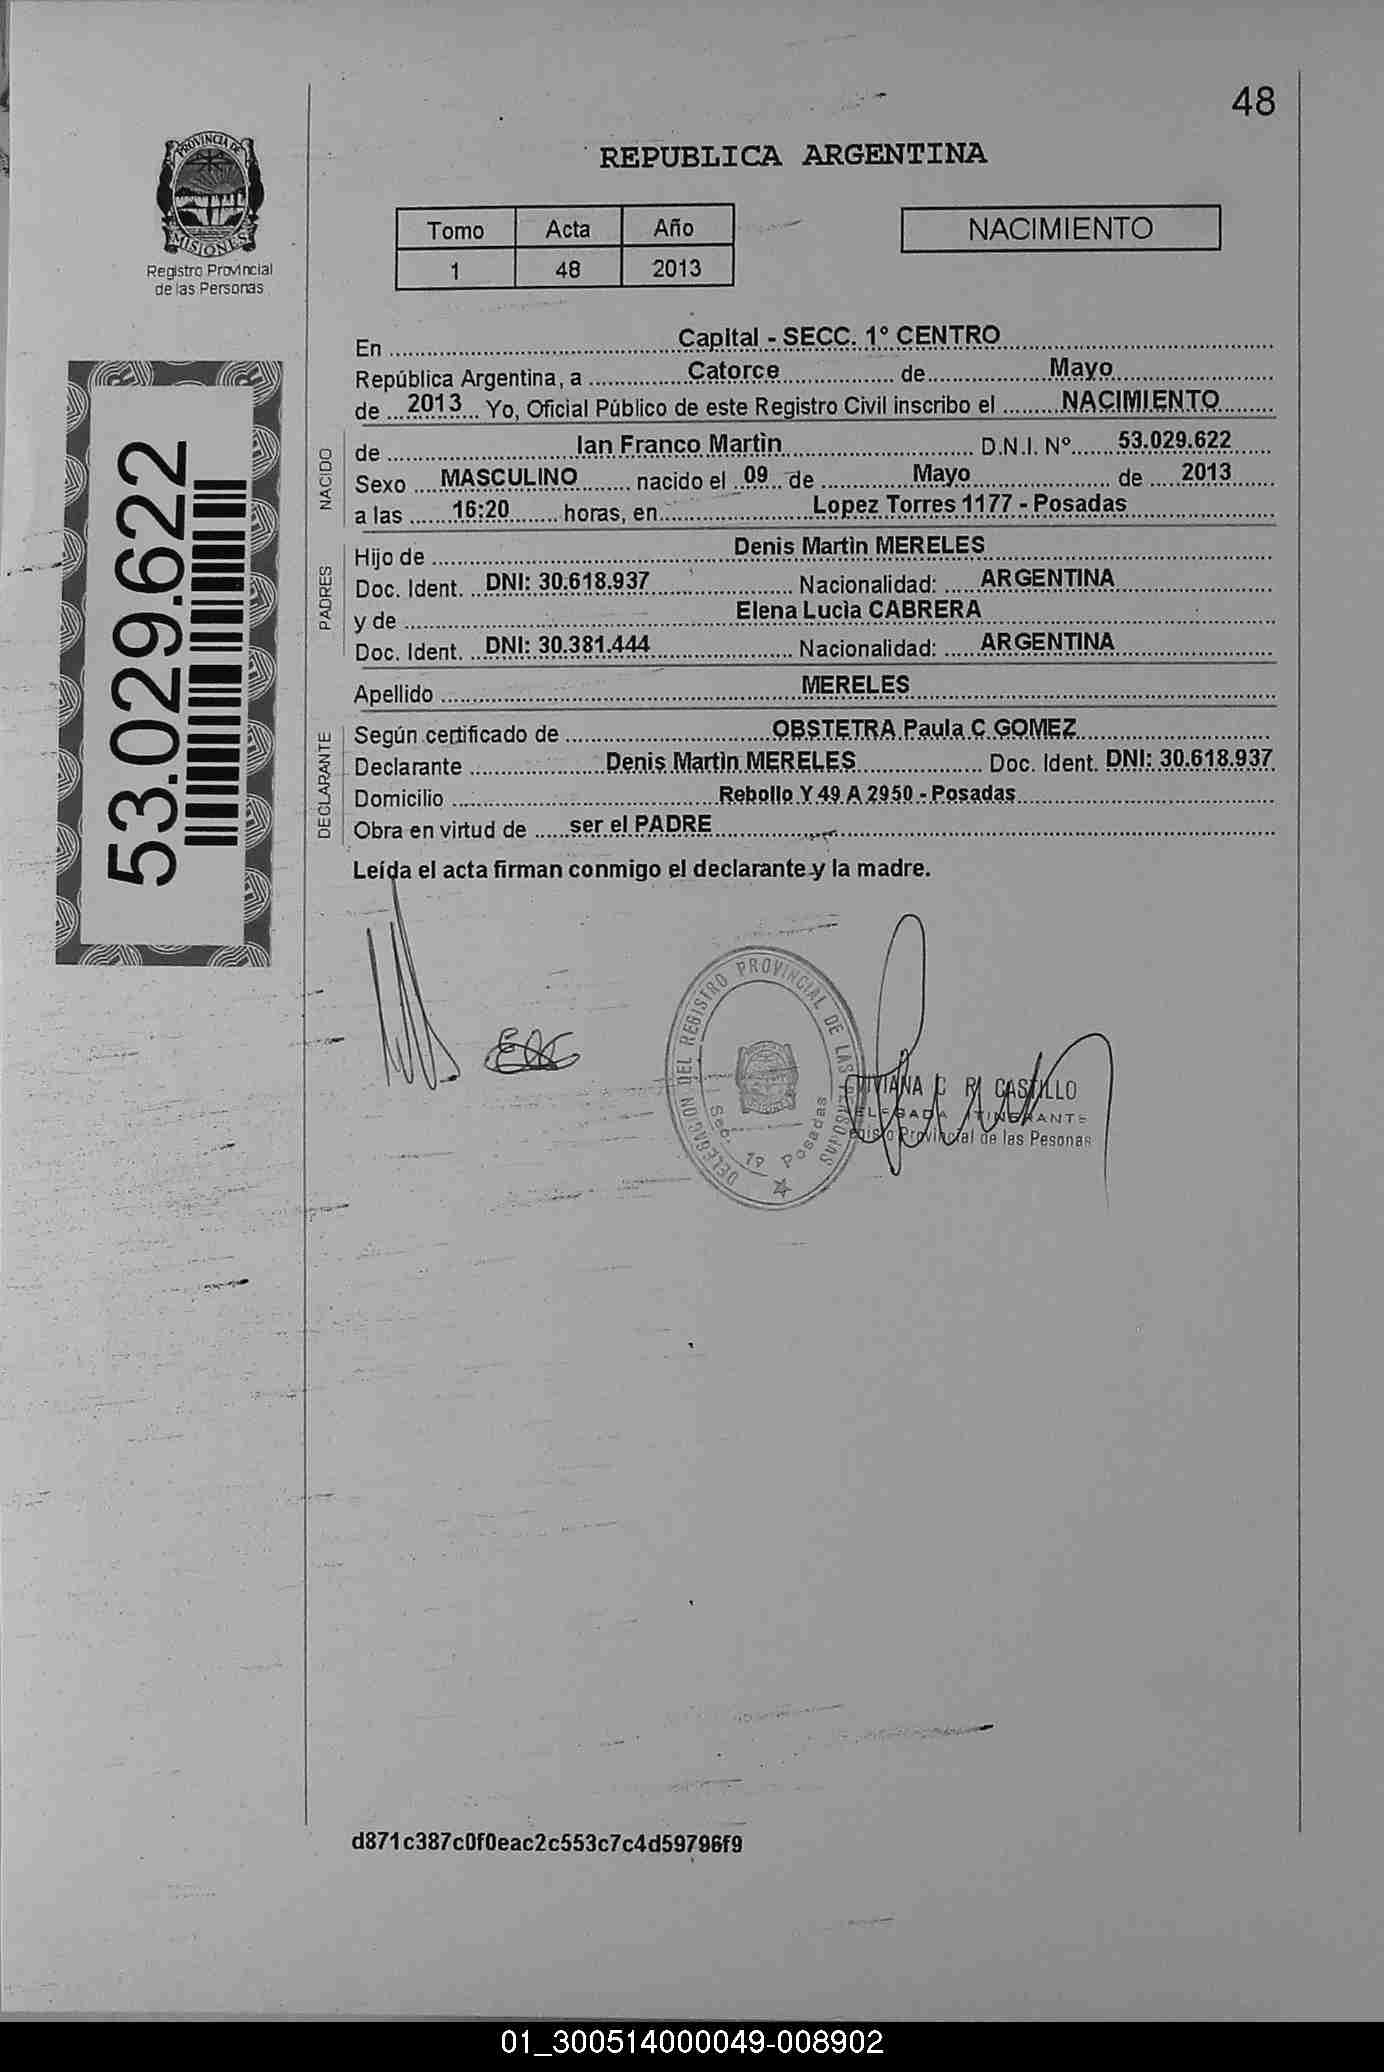 48
PROVINCIA DE
MISIONES
Registro Provincial
de las Personas
REPUBLICA ARGENTINA
Tomo Acta Año
1 48 2013
NACIMIENTO
53.029.622
En Capital - SECC. 1° CENTRO
República Argentina, a Catorce de Mayo
de 2013 Yo, Oficial Público de este Registro Civil inscribo el NACIMIENTO
NACIDO
de Ian Franco Martìn D.N.I. Nº 53.029.622
Sexo MASCULINO nacido el 09 de Mayo de 2013
a las 16:20 horas, en Lopez Torres 1177 - Posadas
PADRES
Hijo de Denis Martìn MERELES
Doc. Ident. DNI: 30.618.937 Nacionalidad: ARGENTINA
y de Elena Lucìa CABRERA
Doc. Ident. DNI: 30.381.444 Nacionalidad: ARGENTINA
Apellido MERELES
DECLARANTE
Según certificado de OBSTETRA Paula C GOMEZ
Declarante Denis Martìn MERELES Doc. Ident. DNI: 30.618.937
Domicilio Rebollo Y 49 A 2950 - Posadas
Obra en virtud de ser el PADRE
Leída el acta firman conmigo el declarante y la madre.
DELEGACION DEL REGISTRO PROVINCIAL DE LAS PERSONAS
Sec. 1ª Posadas
VIVIANA C R CASTILLO
DELEGADA ITINERANTE
Registro Provincial de las Pesonas
d871c387c0f0eac2c553c7c4d59796f9
01_300514000049-008902